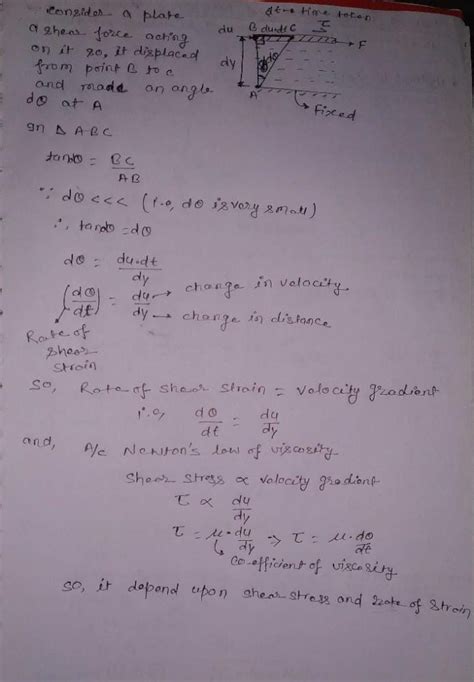 consider a plate
a shear force acting
on it so, it displaced
from point B to c
and made an angle
dθ at A
dt → time taken
du B du.dt C τ
F
dy dθ
A
Fixed
In Δ ABC
tandθ = BC/AB
∵ dθ <<< (i.e, dθ is very small)
∴ tandθ = dθ
dθ = du.dt/dy
(dθ/dt) = du/dy → change in velocity
→ change in distance
Rate of
shear
strain
So, Rate of shear strain = velocity gradient
i.e, dθ/dt = du/dy
and, A/c Newton's law of viscosity
Shear stress ∝ velocity gradient
τ ∝ du/dy
τ = μ.du/dy → τ = μ.dθ/dt
co-efficient of viscosity
so, it depend upon shear stress and rate of strain